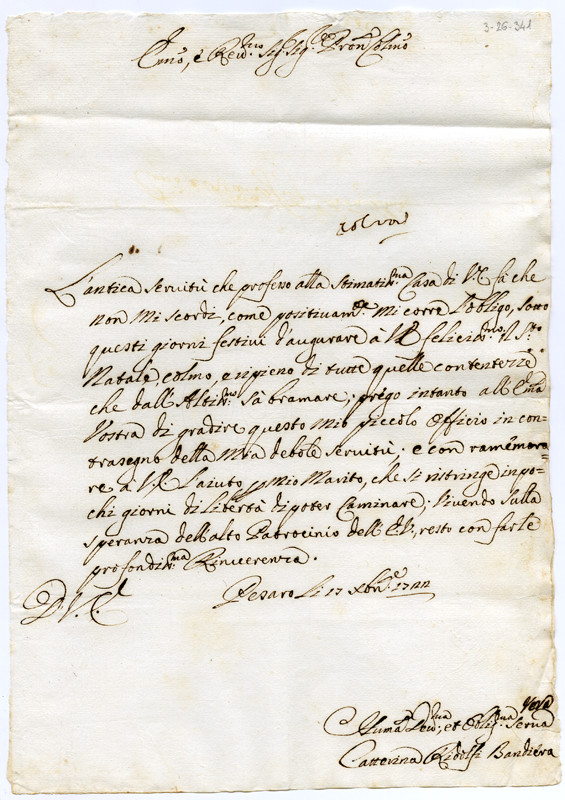 3-26-341
Emo, e Revmo Sig. Sig. Pron Colmo
L'antica servitù che professo alla Stimatissma Casa di V.E. fa che
non mi scordi, come positivamte mi corre l'obligo, sotto
questi giorni festivi d'augurare à VE felicissmo il Sto
Natale, colmo, e ripieno di tutte quelle contentezze
che dall'Altissmo sà bramare; prego intanto all'Emza
Vostra di gradire questo mio piccolo officio in con-
trasegno della mia debole servitù. e con ramemora=
re à VE l'aiuto p mio Marito, che si ristringe in po-
chi giorni di libertà di poter caminare; vivendo sulla
speranza dell'alto Patrocinio dell'E.V., resto con farle
profondissma Riuverenza.
D. V. E.
Pesaro li 17 Xbre
Umma Devma, et Obligma Serva Vera
Catterina Ridolfi Bandiera